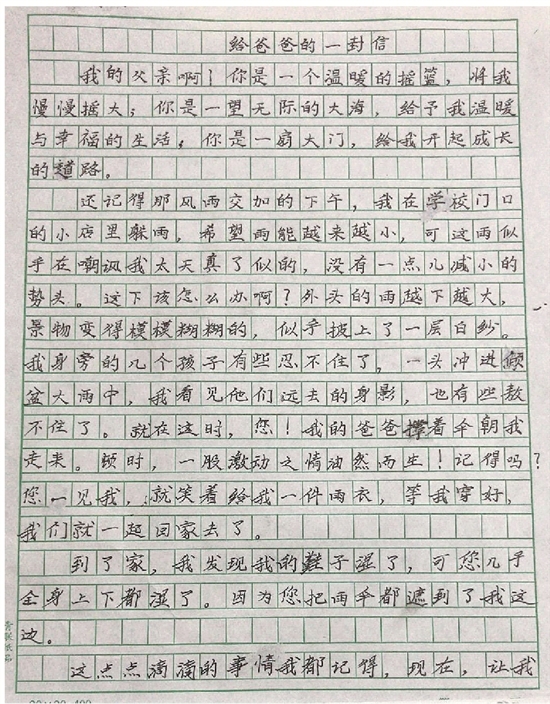 给爸爸的一封信
我的父亲啊！你是一个温暖的摇篮，将我
慢慢摇大；你是一望无际的大海，给予我温暖
与幸福的生活；你是一扇大门，给我开起成长
的道路。
还记得那风雨交加的下午，我在学校门口
的小店里躲雨，希望雨能越来越小，可这雨似
乎在嘲讽我太天真了似的，没有一点儿减小的
势头。这下该怎么办啊？外头的雨越下越大，
景物变得模模糊糊的，似乎披上了一层白纱。
我身旁的几个孩子有些忍不住了，一头冲进倾
盆大雨中，我看见他们远去的身影，也有些熬
不住了。就在这时，您！我的爸爸撑着伞朝我
走来。顿时，一股激动之情油然而生！记得吗？
您一见我，就笑着给我一件雨衣，等我穿好，
我们就一起回家去了。
到了家，我发现我的鞋子湿了，可您几乎
全身上下都湿了。因为您把雨伞都遮到了我这
边。
这点点滴滴的事情我都记得，现在，让我